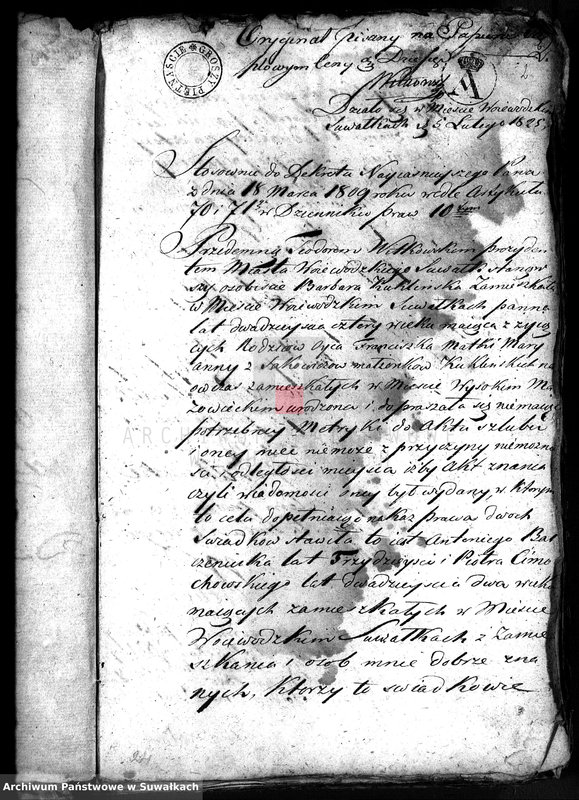 GROSZY PIĘTNAŚCIE
Oryginał Pisany na Papierze
plowym ceny
Działo się w Mieście Woiewodzkim
Suwałkach d. 5 Lutego 1825 r.
Stosownie do Dekretu Nayiasnieyszego Pana
z dnia 18 Marca 1809 roku wedle Artykułu
70 i 71 w Dzienniku praw 10
Przedemną Teodorem Wołkowskim prezyden
tem Miasta Woiewodzkiego Suwałk stanąw
szy osobiście Barbara Kuklińska Zamieszkała
w Mieście Woiewodzkim Suwałkach panna
lat dwadzieścia cztery wieku maiąca z żyią
cych Rodziców Oyca Franciszka Matki Mary
anny z Sakowiczow małżonków Kuklinskich na
ow czas zamieszkałych w Mieście Wysokim Ma
zowieckim urodzona i do praszała się niemaiąc
potrzebney Metryki do Aktu szlubu
i oney mieć niemoże z przyczyny niemożno
ści i odległości mieysca iżby Akt znania
czyli wiadomości oney był wydany w którym
to celu dopełniaiąc nakaz prawa dwoch
swiadków stawiła to iest Antoniego Bar
czeniuka lat Trzydzieści i Piotra Cimo
chowskiego lat dwadzieścia dwa wieku
maiących zamieszkałych w Mieście
Woiewodzkim Suwałkach z Zamie
szkania i osob mnie dobrze zna
nych, ktorzy to swiadkowie
Archiwum Państwowe w Suwałkach